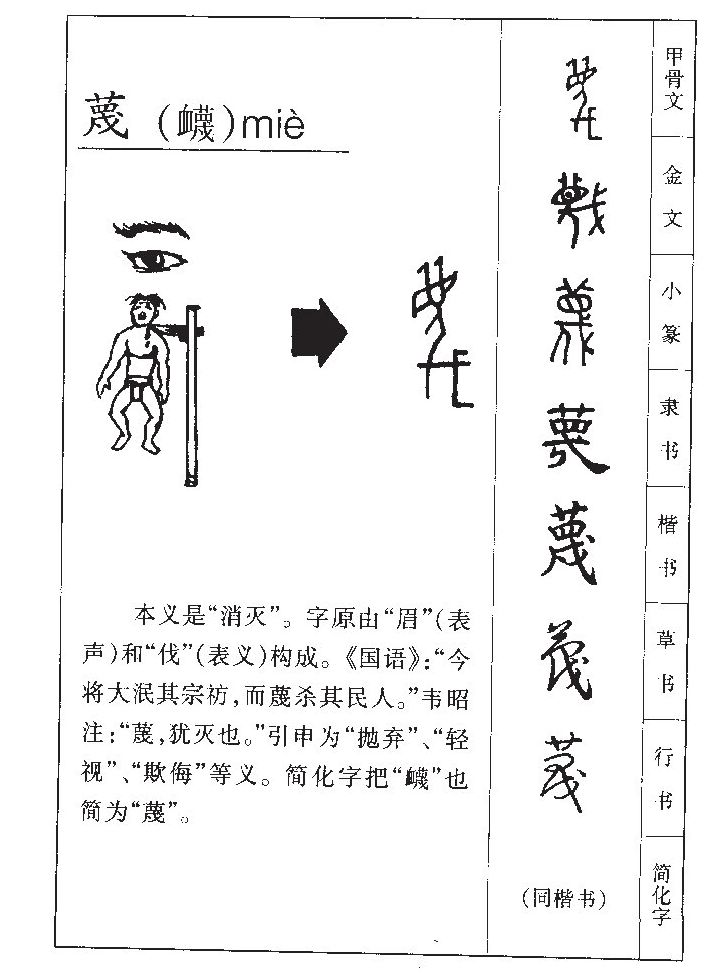 蔑（衊）miè
本义是“消灭”。字原由“眉”（表
声）和“伐”（表义）构成。《国语》：“今
将大泯其宗祊，而蔑杀其民人。”韦昭
注：“蔑，犹灭也。”引申为“抛弃”、“轻
视”、“欺侮”等义。简化字把“衊”也
简为“蔑”。
蔑
蔑
蔑
蔑
蔑
蔑
蔑
（同楷书）
甲骨文
金文
小篆
隶书
楷书
草书
行书
简化字